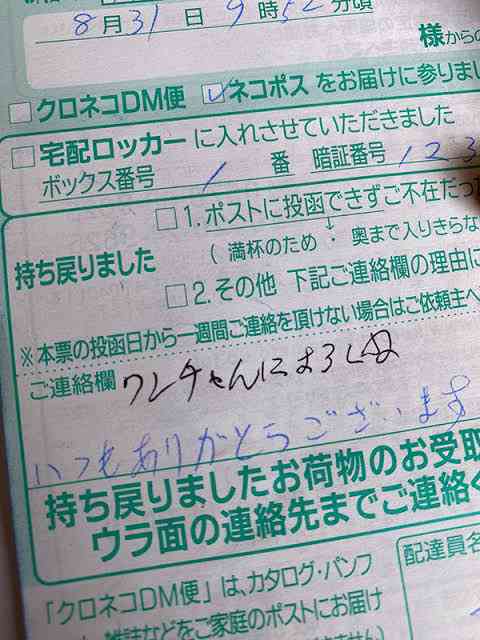 8月31日 9時52分頃
様からの
クロネコDM便 ネコポス をお届けに参りまし
宅配ロッカーに入れさせていただきました
ボックス番号 1 番 暗証番号 123
1.ポストに投函できずご不在だっ
(満杯のため・奥まで入りきらな
持ち戻りました
2.その他 下記ご連絡欄の理由に
※本票の投函日から一週間ご連絡を頂けない場合はご依頼主へ
ご連絡欄 ワンチャんによろしくね
いつもありがとうございます
持ち戻りましたお荷物のお受取
ウラ面の連絡先までご連絡く
配達員名
「クロネコDM便」は、カタログ・パンフ
雑誌などをご家庭のポストにお届け